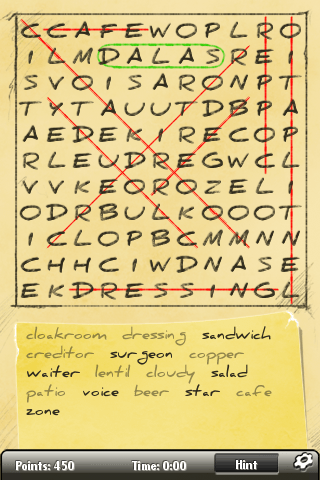 C C A F E W O P L R O
I L M D A L A S R E I
S V O I S A R O N P T
T Y T A U U T D B P A
A E D E K I R E C O P
R L E U D R E G W C L
V V K E O R O Z E L I
O D R B U L K O O O T
I C L O P B C M M N N
C H H C I W D N A S E
E K D R E S S I N G L
cloakroom dressing sandwich
creditor surgeon copper
waiter lentil cloudy salad
patio voice beer star cafe
zone
Points: 450 Time: 0:00 Hint